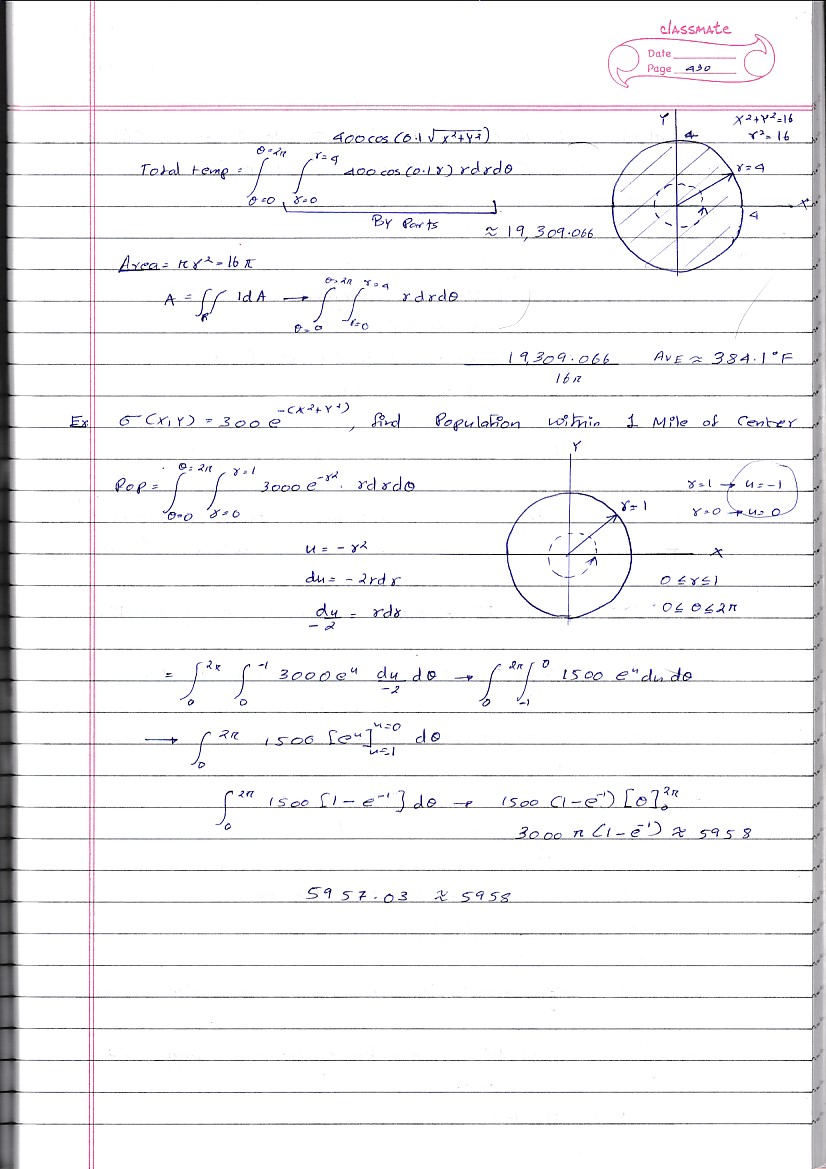 classmate
Date
Page 430
X²+Y²=16
r²=16
Y
4
r=4
X
4
400cos(0.1√(X²+Y²))
Total temp = ∫_{θ=0}^{θ=2π} ∫_{r=0}^{r=4} 400cos(0.1r) rdrdθ
By Parts
≈ 19,309.066
Area = πr² = 16π
A = ∬_R 1dA → ∫_{θ=0}^{θ=2π} ∫_{r=0}^{r=4} rdrdθ
19,309.066 / 16π AVE ≈ 384.1°F
Ex σ(X,Y) = 300e^{-(X²+Y²)}, find Population within 1 Mile of Center
Y
r=1
X
Pop = ∫_{θ=0}^{θ=2π} ∫_{r=0}^{r=1} 3000e^{-r²}. rdrdθ
r=1 → u=-1
r=0 → u=0
u = -r²
du = -2rdr
du/-2 = rdr
0≤r≤1
0≤θ≤2π
= ∫_0^{2π} ∫_0^{-1} 3000e^u du/-2 dθ → ∫_0^{2π} ∫_{-1}^0 1500 e^u du dθ
→ ∫_0^{2π} 1500 [e^u]_{u=-1}^{u=0} dθ
∫_0^{2π} 1500 [1-e^{-1}] dθ → 1500 (1-e^{-1}) [θ]_0^{2π}
3000π(1-e^{-1}) ≈ 5958
5957.03 ≈ 5958